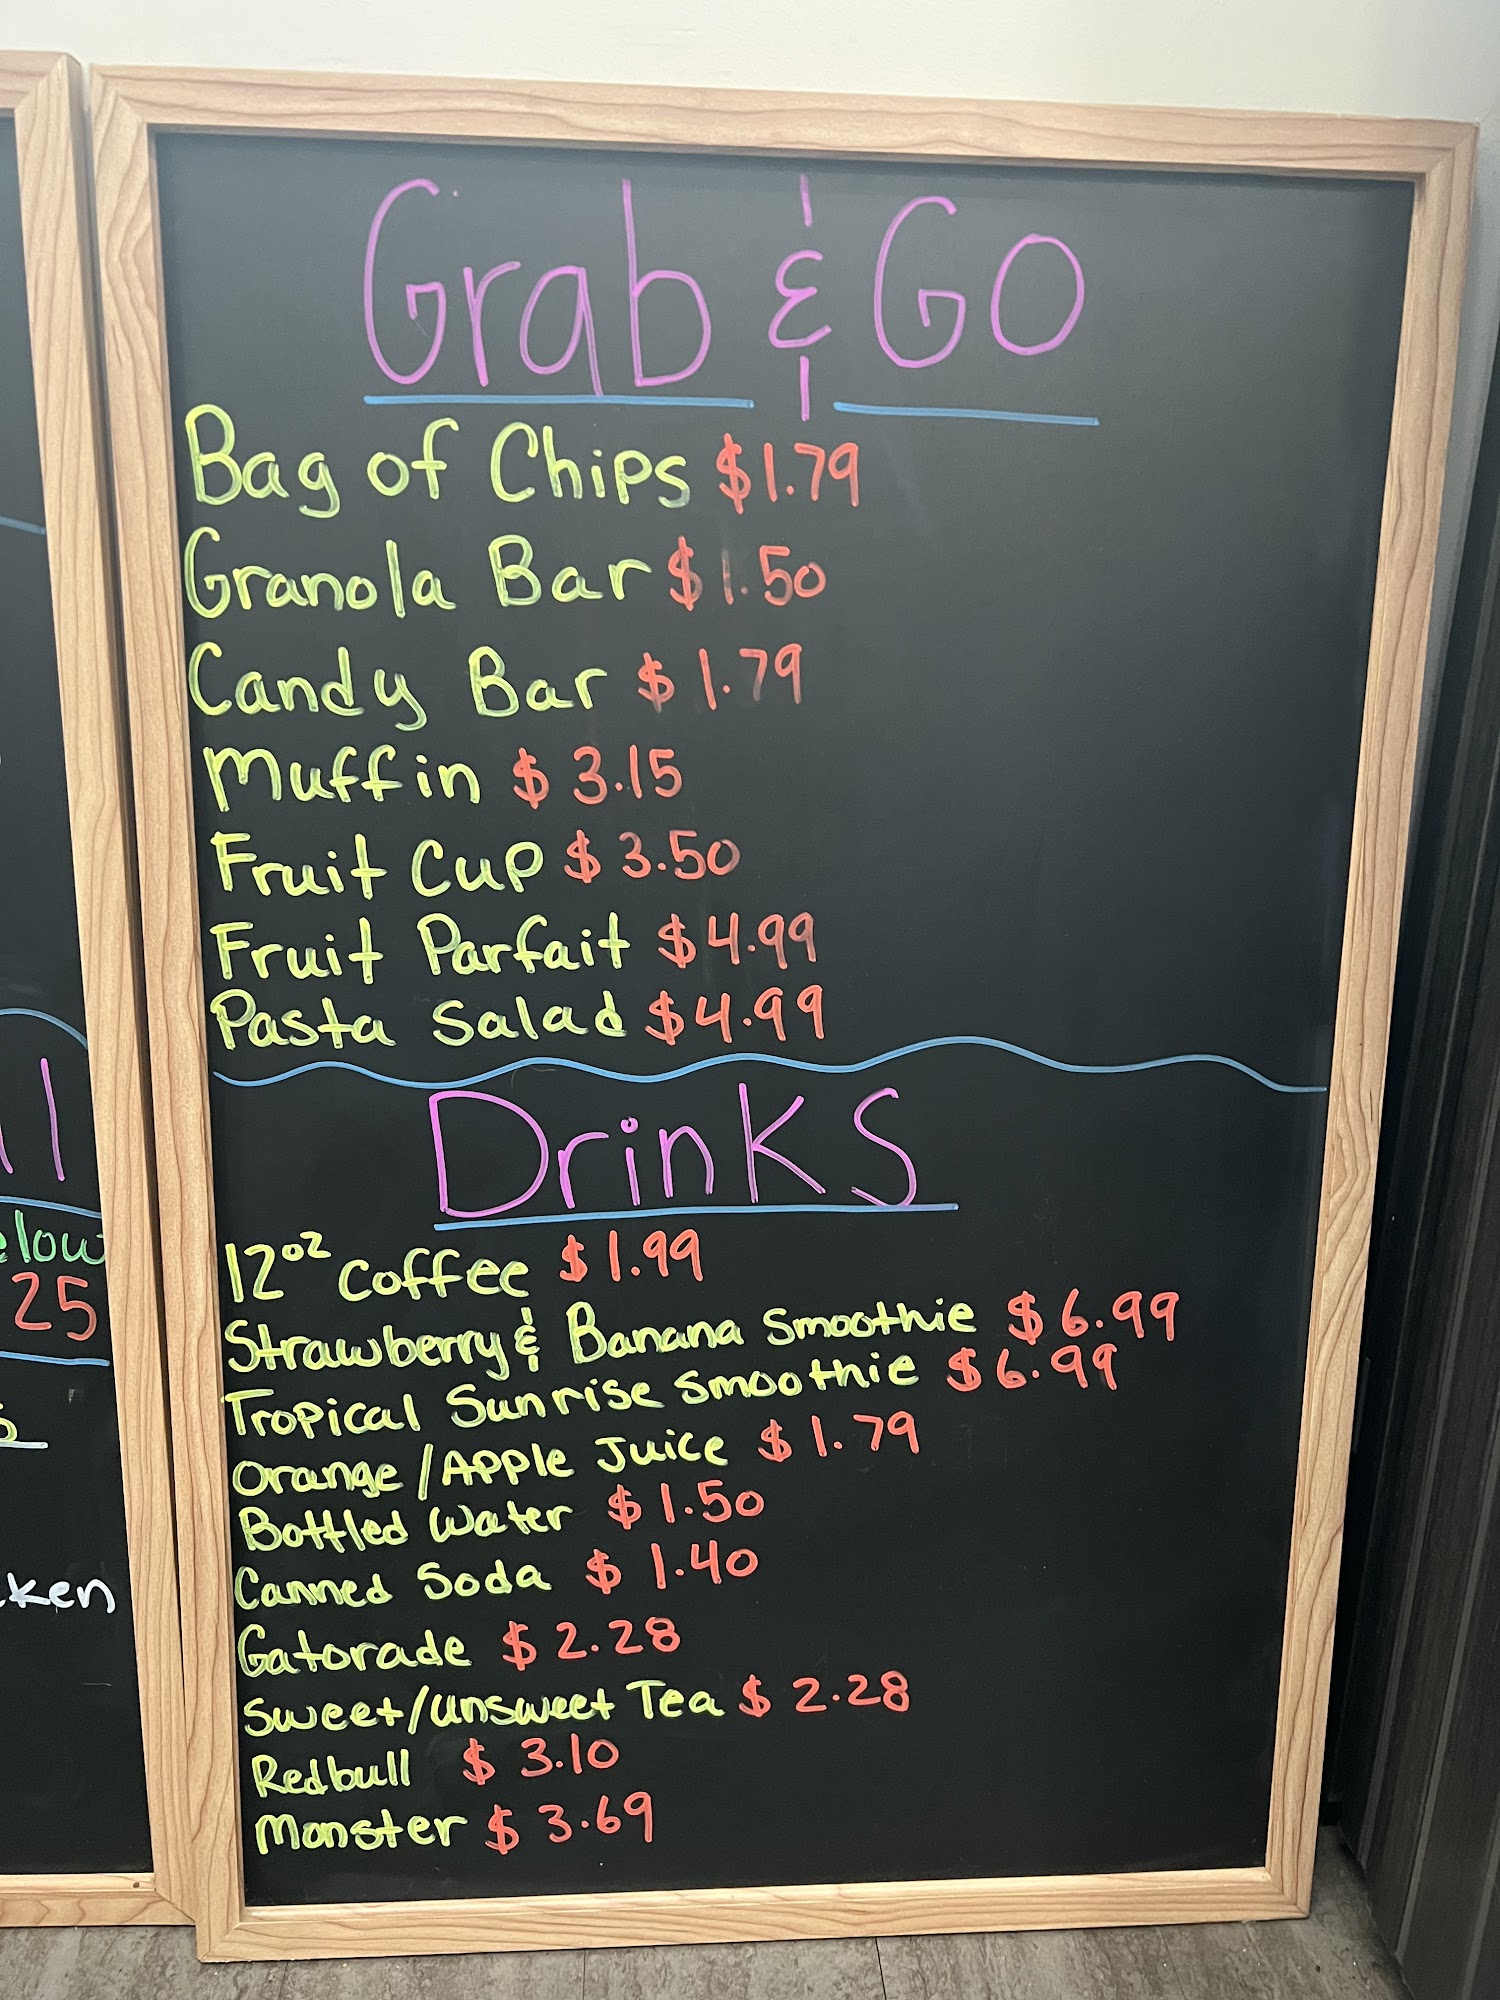 Grab & Go
Bag of Chips $1.79
Granola Bar $1.50
Candy Bar $1.79
Muffin $3.15
Fruit Cup $3.50
Fruit Parfait $4.99
Pasta Salad $4.99
Drinks
12oz Coffee $1.99
Strawberry & Banana Smoothie $6.99
Tropical Sunrise Smoothie $6.99
Orange/Apple Juice $1.79
Bottled Water $1.50
Canned Soda $1.40
Gatorade $2.28
Sweet/Unsweet Tea $2.28
Redbull $3.10
Monster $3.69
elow
25
cken